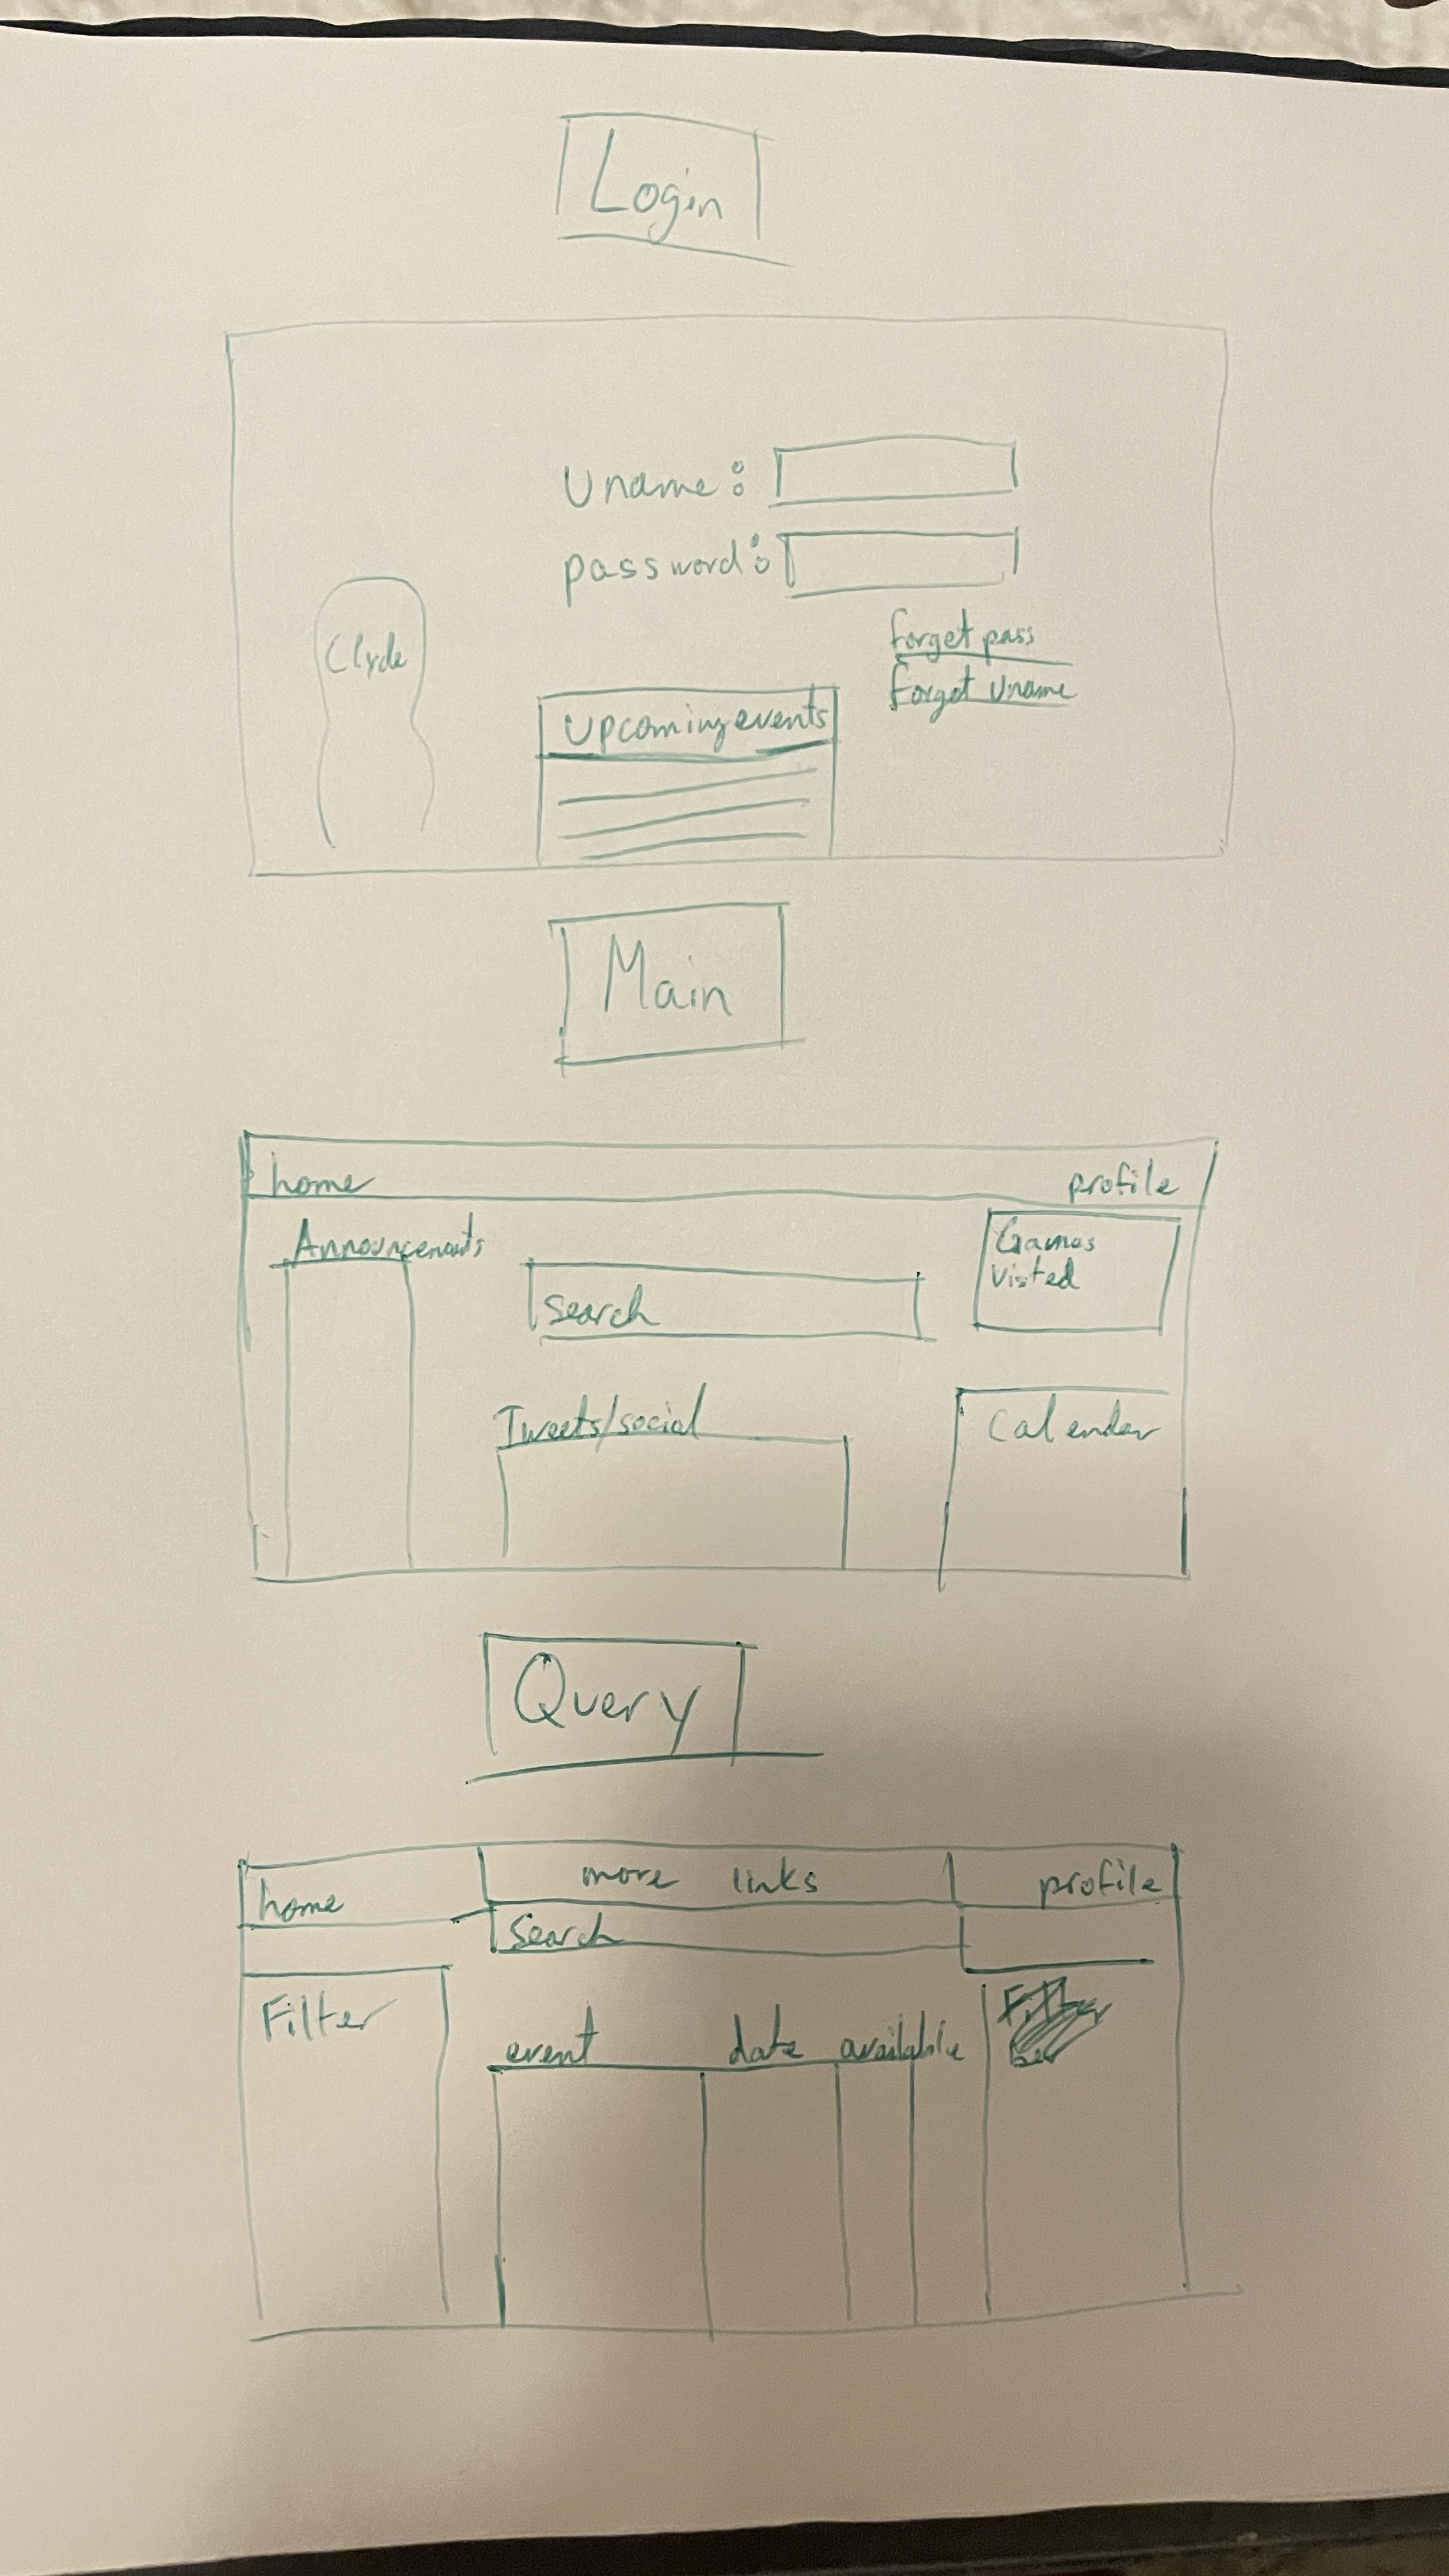 Login
Uname:
password:
forget pass
forgot Uname
Clyde
Upcoming events
Main
home profile
Announcements
Games
Visted
search
Tweets/social
Calender
Query
home more links profile
Search
Filter
event date available